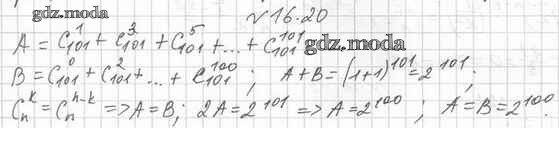 gdz.moda
№16.20
A = C¹₁₀₁ + C³₁₀₁ + C⁵₁₀₁ + ... + C¹⁰¹₁₀₁
gdz.moda
B = C⁰₁₀₁ + C²₁₀₁ + ... + C¹⁰⁰₁₀₁ ; A+B = (1+1)¹⁰¹ = 2¹⁰¹ ;
Cₙᵏ = Cₙⁿ⁻ᵏ => A = B; 2A = 2¹⁰¹ => A = 2¹⁰⁰ ; A = B = 2¹⁰⁰.